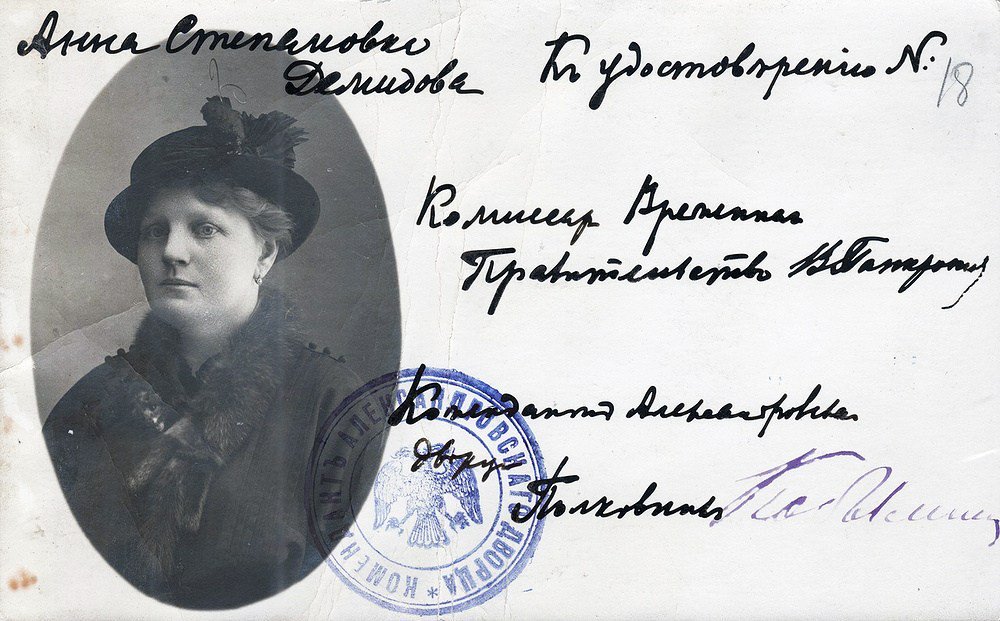 Анна Степановна
Демидова
Къ удостовѣренію №: 18
Комиссар Временнаг
Правительства
Комендантъ Александровска
дворца
Полковникъ
КОМЕНДАНТЪ АЛЕКСАНДРОВСКАГО ДВОРЦА *